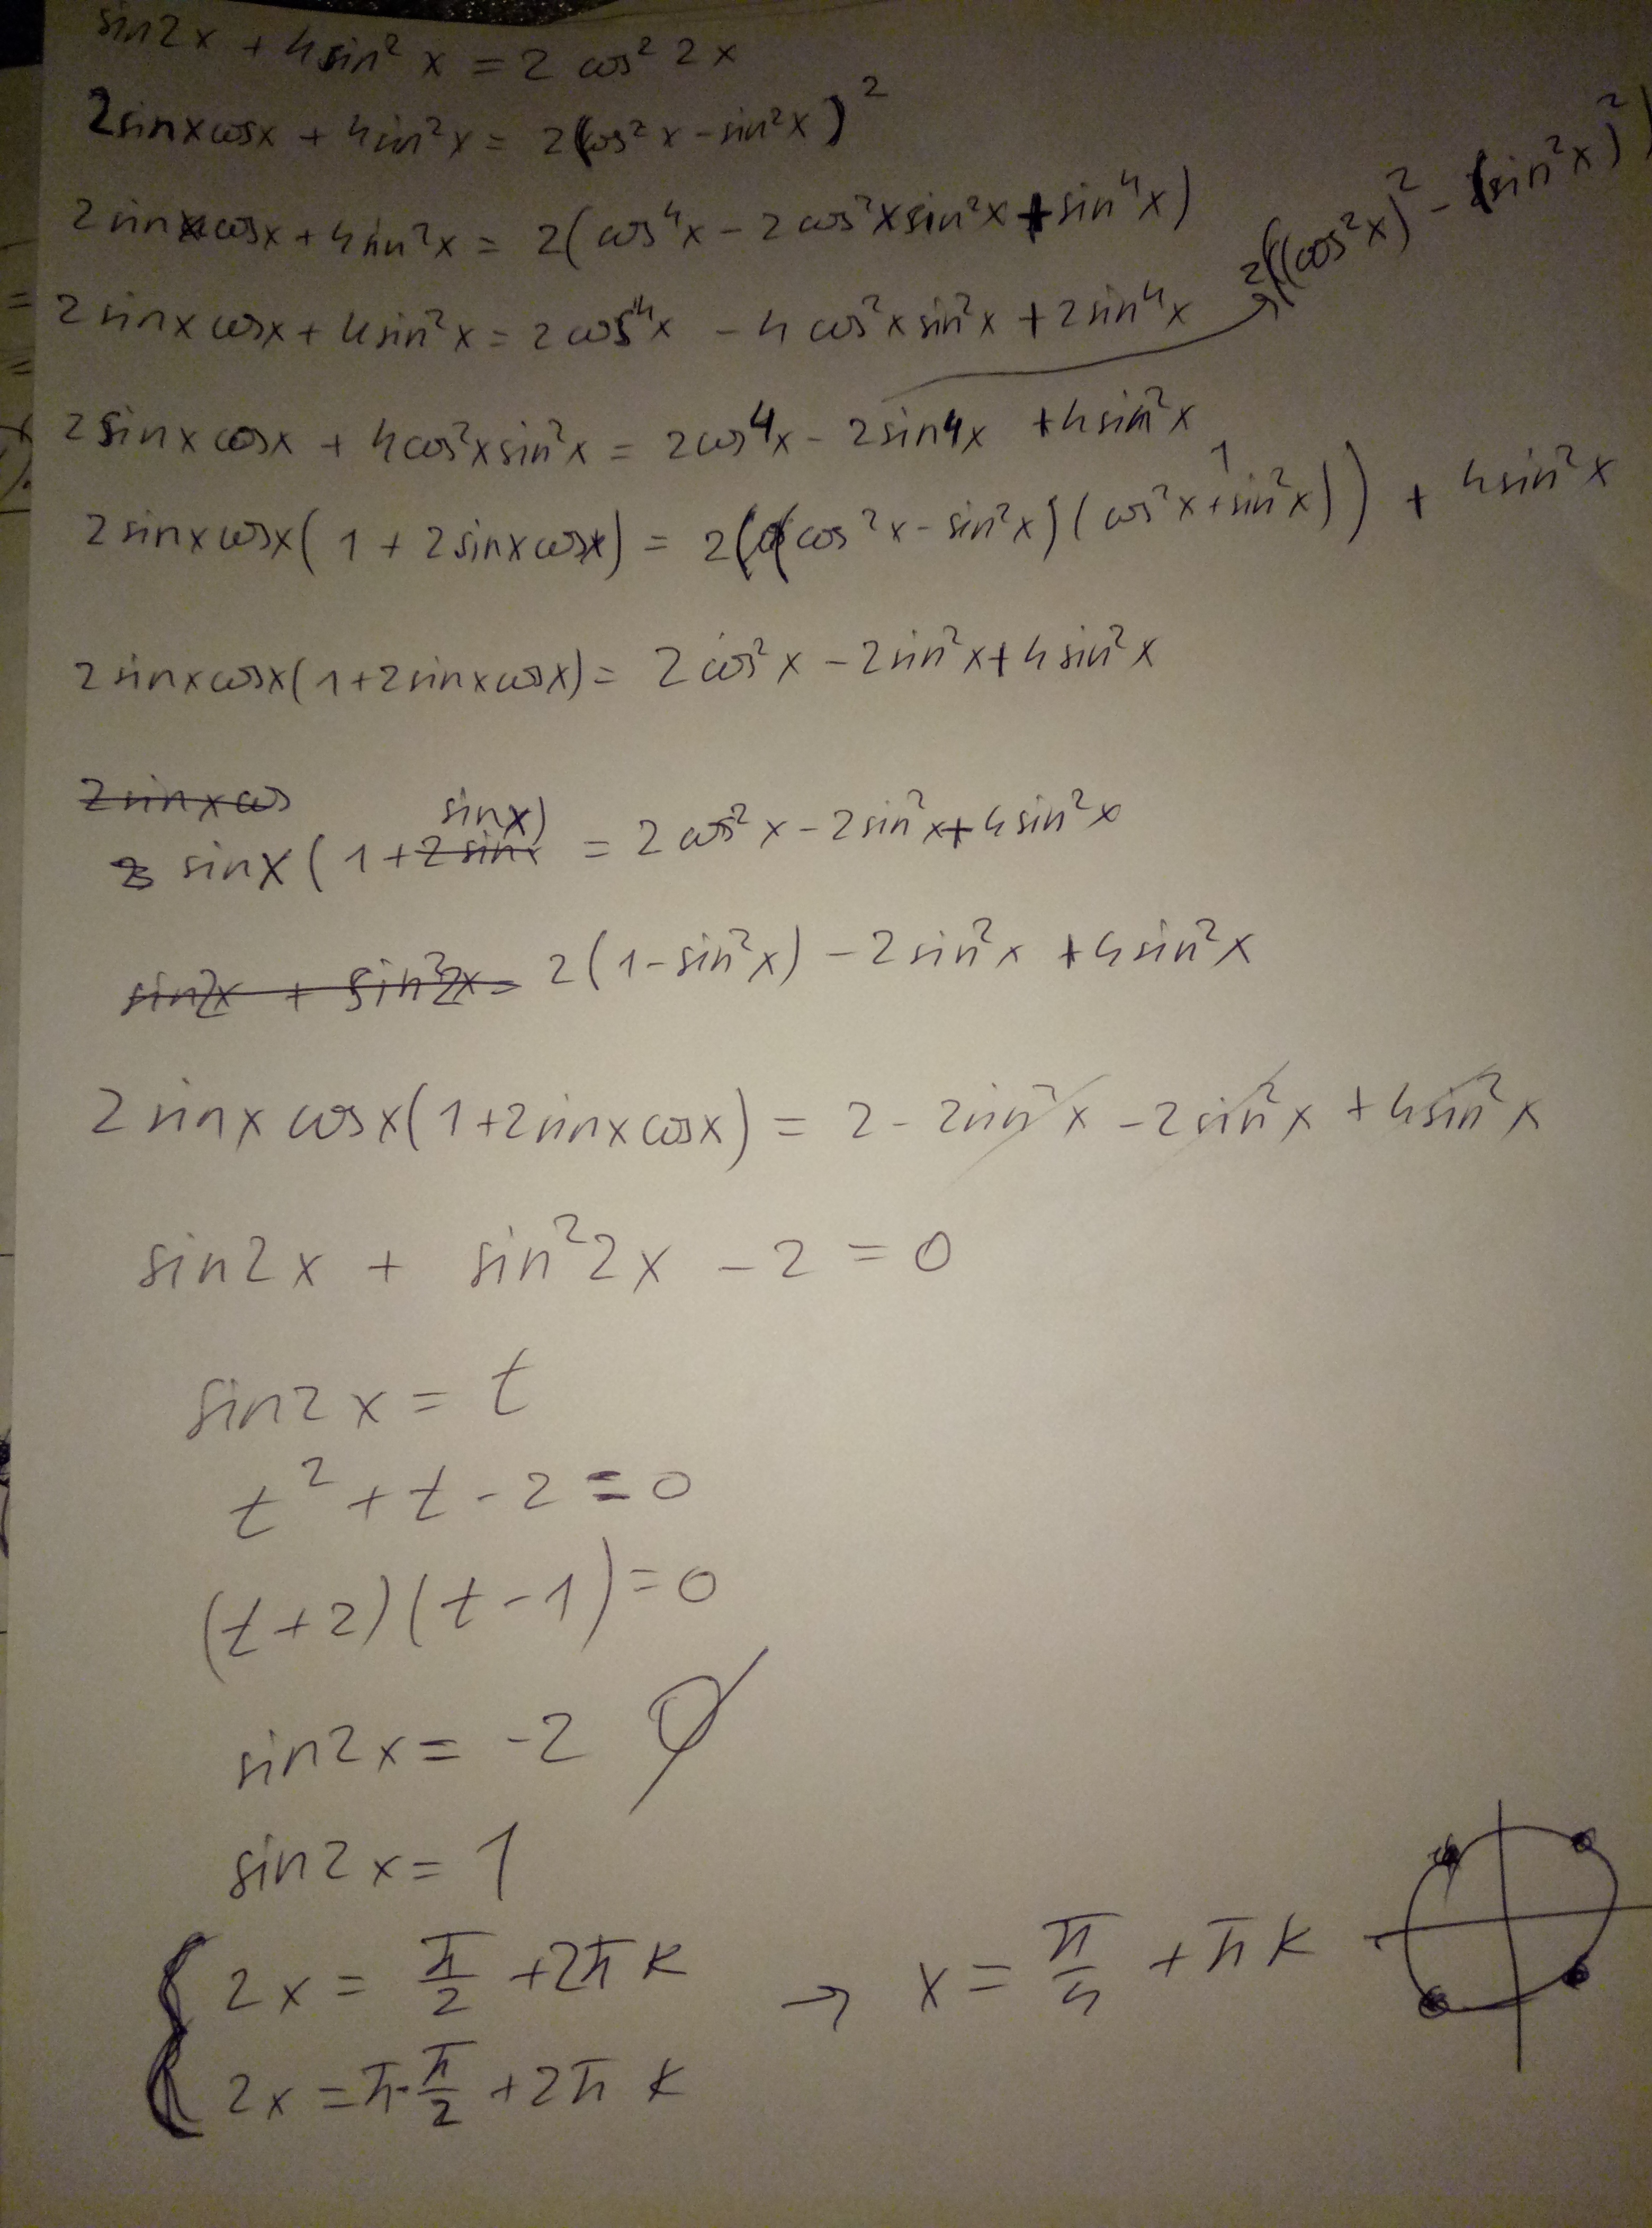 sin2x + 4sin² x = 2 cos² 2x
2sinxcosx + 4sin²x = 2(cos²x - sin²x)²
2sinxcosx + 4sin²x = 2(cos⁴x - 2cos²xsin²x + sin⁴x)
2((cos²x)² - (sin²x)²)
2sinxcosx + 4sin²x = 2cos⁴x - 4cos²xsin²x + 2sin⁴x
2sinxcosx + 4cos²xsin²x = 2cos⁴x - 2sin4x + 4sin²x
1
2sinxcosx(1 + 2sinxcosx) = 2((cos²x - sin²x)(cos²x + sin²x)) + 4sin²x
2sinxcosx(1+2sinxcosx) = 2cos²x - 2sin²x + 4sin²x
2sinxcos
sinx)
sinx(1 + 2sinx = 2cos²x - 2sin²x + 4sin²x
sin2x + sin²2x = 2(1-sin²x) - 2sin²x + 4sin²x
2sinxcosx(1+2sinxcosx) = 2 - 2sin²x - 2sin²x + 4sin²x
sin2x + sin²2x - 2 = 0
sin2x = t
t² + t - 2 = 0
(t+2)(t-1) = 0
sin2x = -2 ∅
sin2x = 1
2x = π/2 + 2πk → x = π/4 + πk
2x = π - π/2 + 2πk